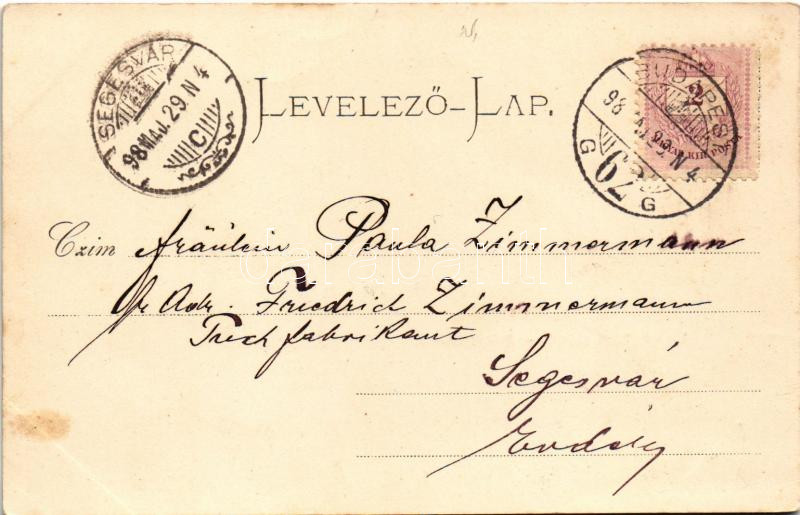 SEGESVÁR
98 MÁJ. 29. N 4
C
LEVELEZŐ-LAP.
BUDAPEST
2
MAGYAR KIR. POSTA
67
G G
Czim Fräulein Paula Zimmermann
pr Adr. Friedrich Zimmermann
Tuchfabrikant
Segesvár
Erdély
darabanth